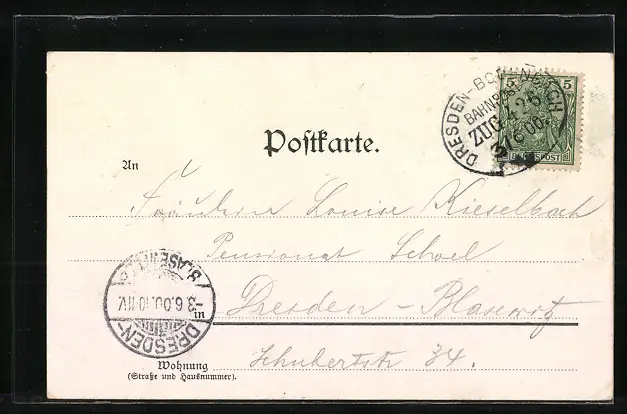 DRESDEN-BODENBACH
BAHNPOST
ZUG 426
3/6 00
5 5
REICHSPOST
Postkarte.
An
Fräulein Louise Kieselbach
Pensionat Schoel
in Dresden – Blasewitz
Schubertstr. 34.
Wohnung
(Straße und Hausnummer).
DRESDEN-
-3.6.00.10-11V.
BLASEWITZ